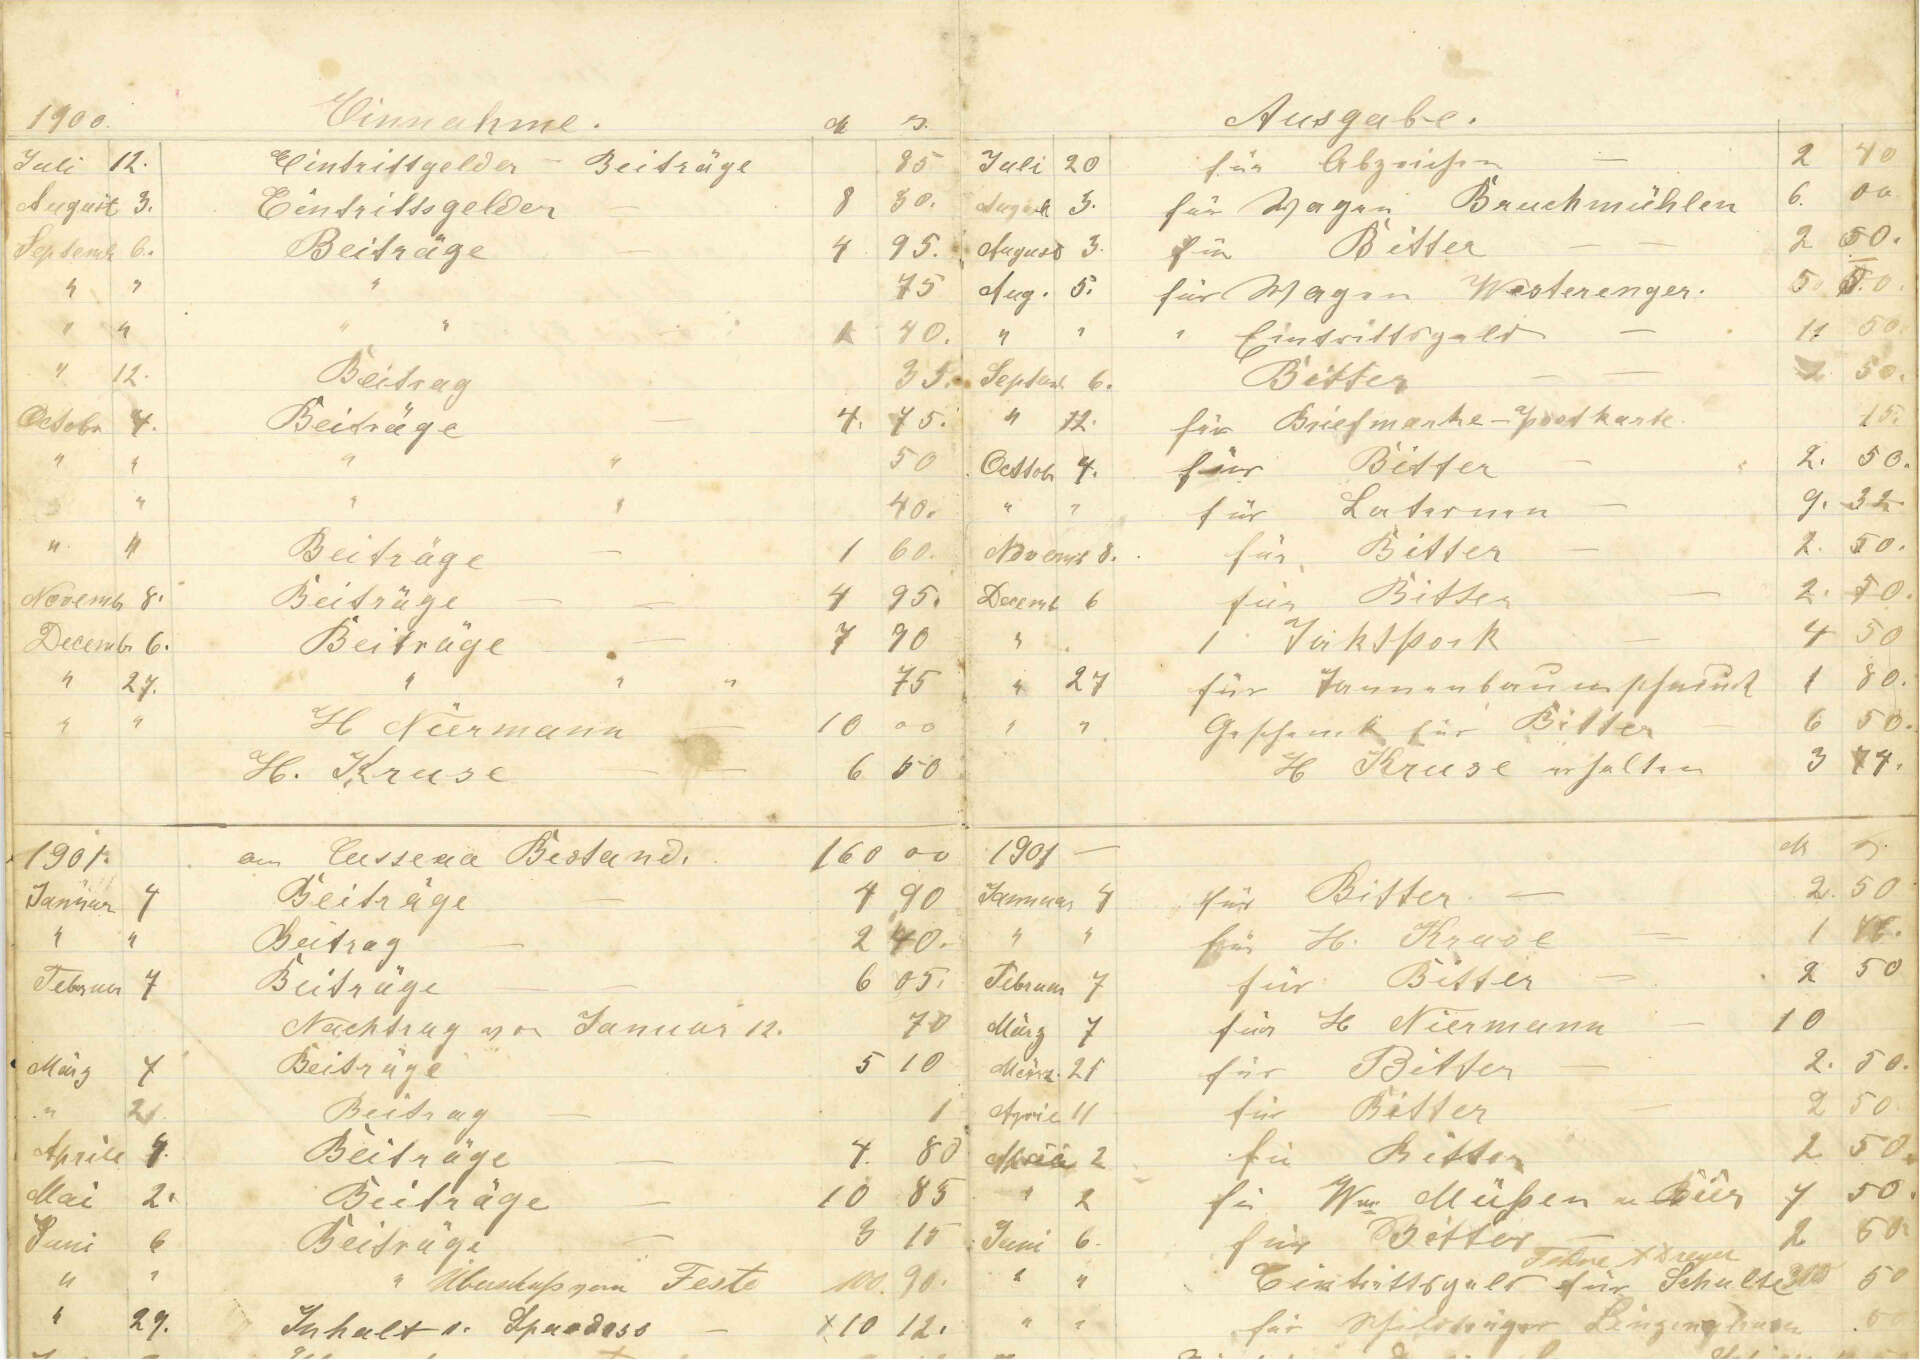 1900. Einnahme. M ₰.
Juli 12. Eintrittgelder – Beiträge 85
August 3. Eintrittsgelder – 8 30.
Septemb 6. Beiträge – 4 95.
" " " 75
" " " " 40.
" 12. Beitrag 35.
Octobr 4. Beiträge – 4. 75.
" " " " 50
" " " 40.
" " Beiträge – 1 60.
Novembr 8. Beiträge – – 4 95.
Decembr 6. Beiträge – – 7 90
" 27. " " " 75
" " H Niermann – 10 00
H. Kruse – – 6 50
1901. am Cassena Bestand. 160 00
Januar 4 Beiträge – 4 90
" " Beitrag – 2 40.
Februar 7 Beiträge – – 6 05.
Nachtrag von Januar 12. 70
März 7 Beiträge 5 10
" 21. Beitrag – 1
Aprill 4. Beiträge – 4. 80
Mai 2. Beiträge – 10 85
Juni 6 Beiträge – 3 15
" " " Überschuß vom Feste 100. 90.
" 29. Inhalt v. – 10 12.
Ausgabe.
Juli 20 für Abzeichen – 2 40
August 3. für Wagen Bruchmühlen 6. 00
August 3. für Bitter – – 2 50.
Aug. 5. für Wagen Westerenger. 5 50.
" " " Eintrittsgeld – 11 50.
Septemb 6. Bitter – – 2 50.
" 12. für Briefmarke – Postkarte 15.
Octobr 4. für Bitter – 2. 50.
" " für Laternen – 9. 32
Novemb 8. für Bitter – 2. 50.
Decemb 6 für Bitter – 2. 50.
" 1 – 4 50
" 27 für 1 80.
" " Geschenk für Bitter – 6 50.
H Kruse erhalten 3 74.
1901 – M ₰.
Januar 4 für Bitter – 2. 50
" " für H. Kruse – 1
Februar 7 für Bitter – 2 50
März 7 für H Niermann – 10
März. 21 für Bitter – 2. 50.
April 11 für Bitter – 2 50
2 fü Bitter 2 50.
" 2 fü Wm Müßen u 7 50.
Juni 6. für Bitter – 2 50
Dreyer
" " Eintrittsgeld für Schulte 50
" " für